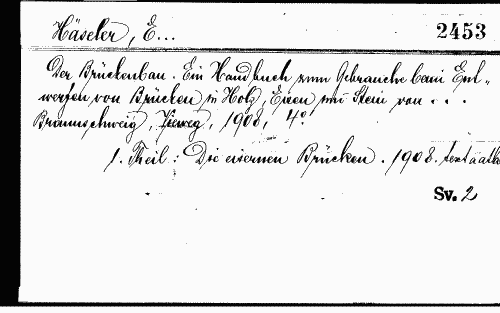 Häseler, E... 2453
Der Brückenbau. Ein Handbuch zum Gebrauche beim Ent-
werfen von Brücken in Holz, Eisen und Stein von...
Braunschweig, Vieweg, 1908, 4°.
1. Theil: Die eisernen Brücken. 1908. text
Sv. 2